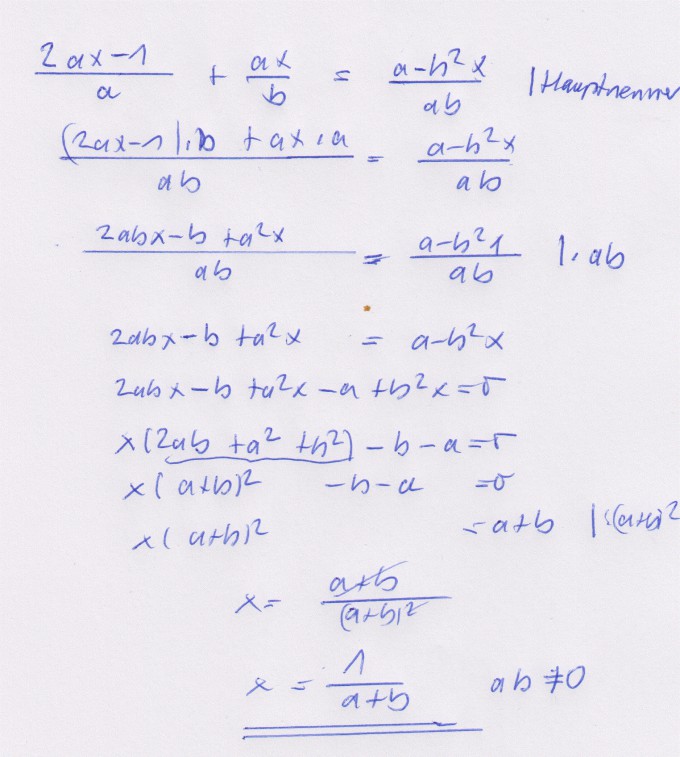 (2ax-1)/a + ax/b = (a-b²x)/(ab) |Hauptnenner
((2ax-1)·b + ax·a)/(ab) = (a-b²x)/(ab)
(2abx-b+a²x)/(ab) = (a-b²1)/(ab) |·ab
2abx-b+a²x = a-b²x
2abx-b+a²x-a+b²x=0
x(2ab+a²+b²)-b-a=0
x(a+b)² -b-a =0
x(a+b)² =a+b |:(a+b)²
x= (a+b)/(a+b)²
x = 1/(a+b) ab≠0